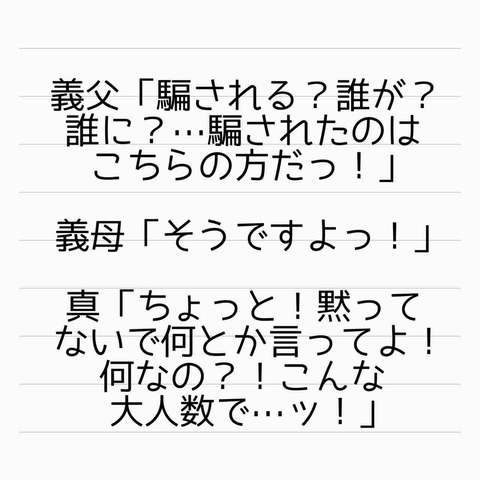 義父「騙される？誰が？
誰に？…騙されたのは
こちらの方だっ！」
義母「そうですよっ！」
真「ちょっと！黙って
ないで何とか言ってよ！
何なの？！こんな
大人数で…ッ！」